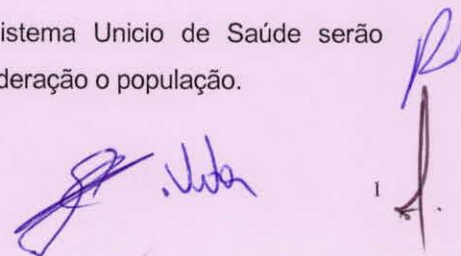 istema Unicio de Saúde serão
deração o população.
1